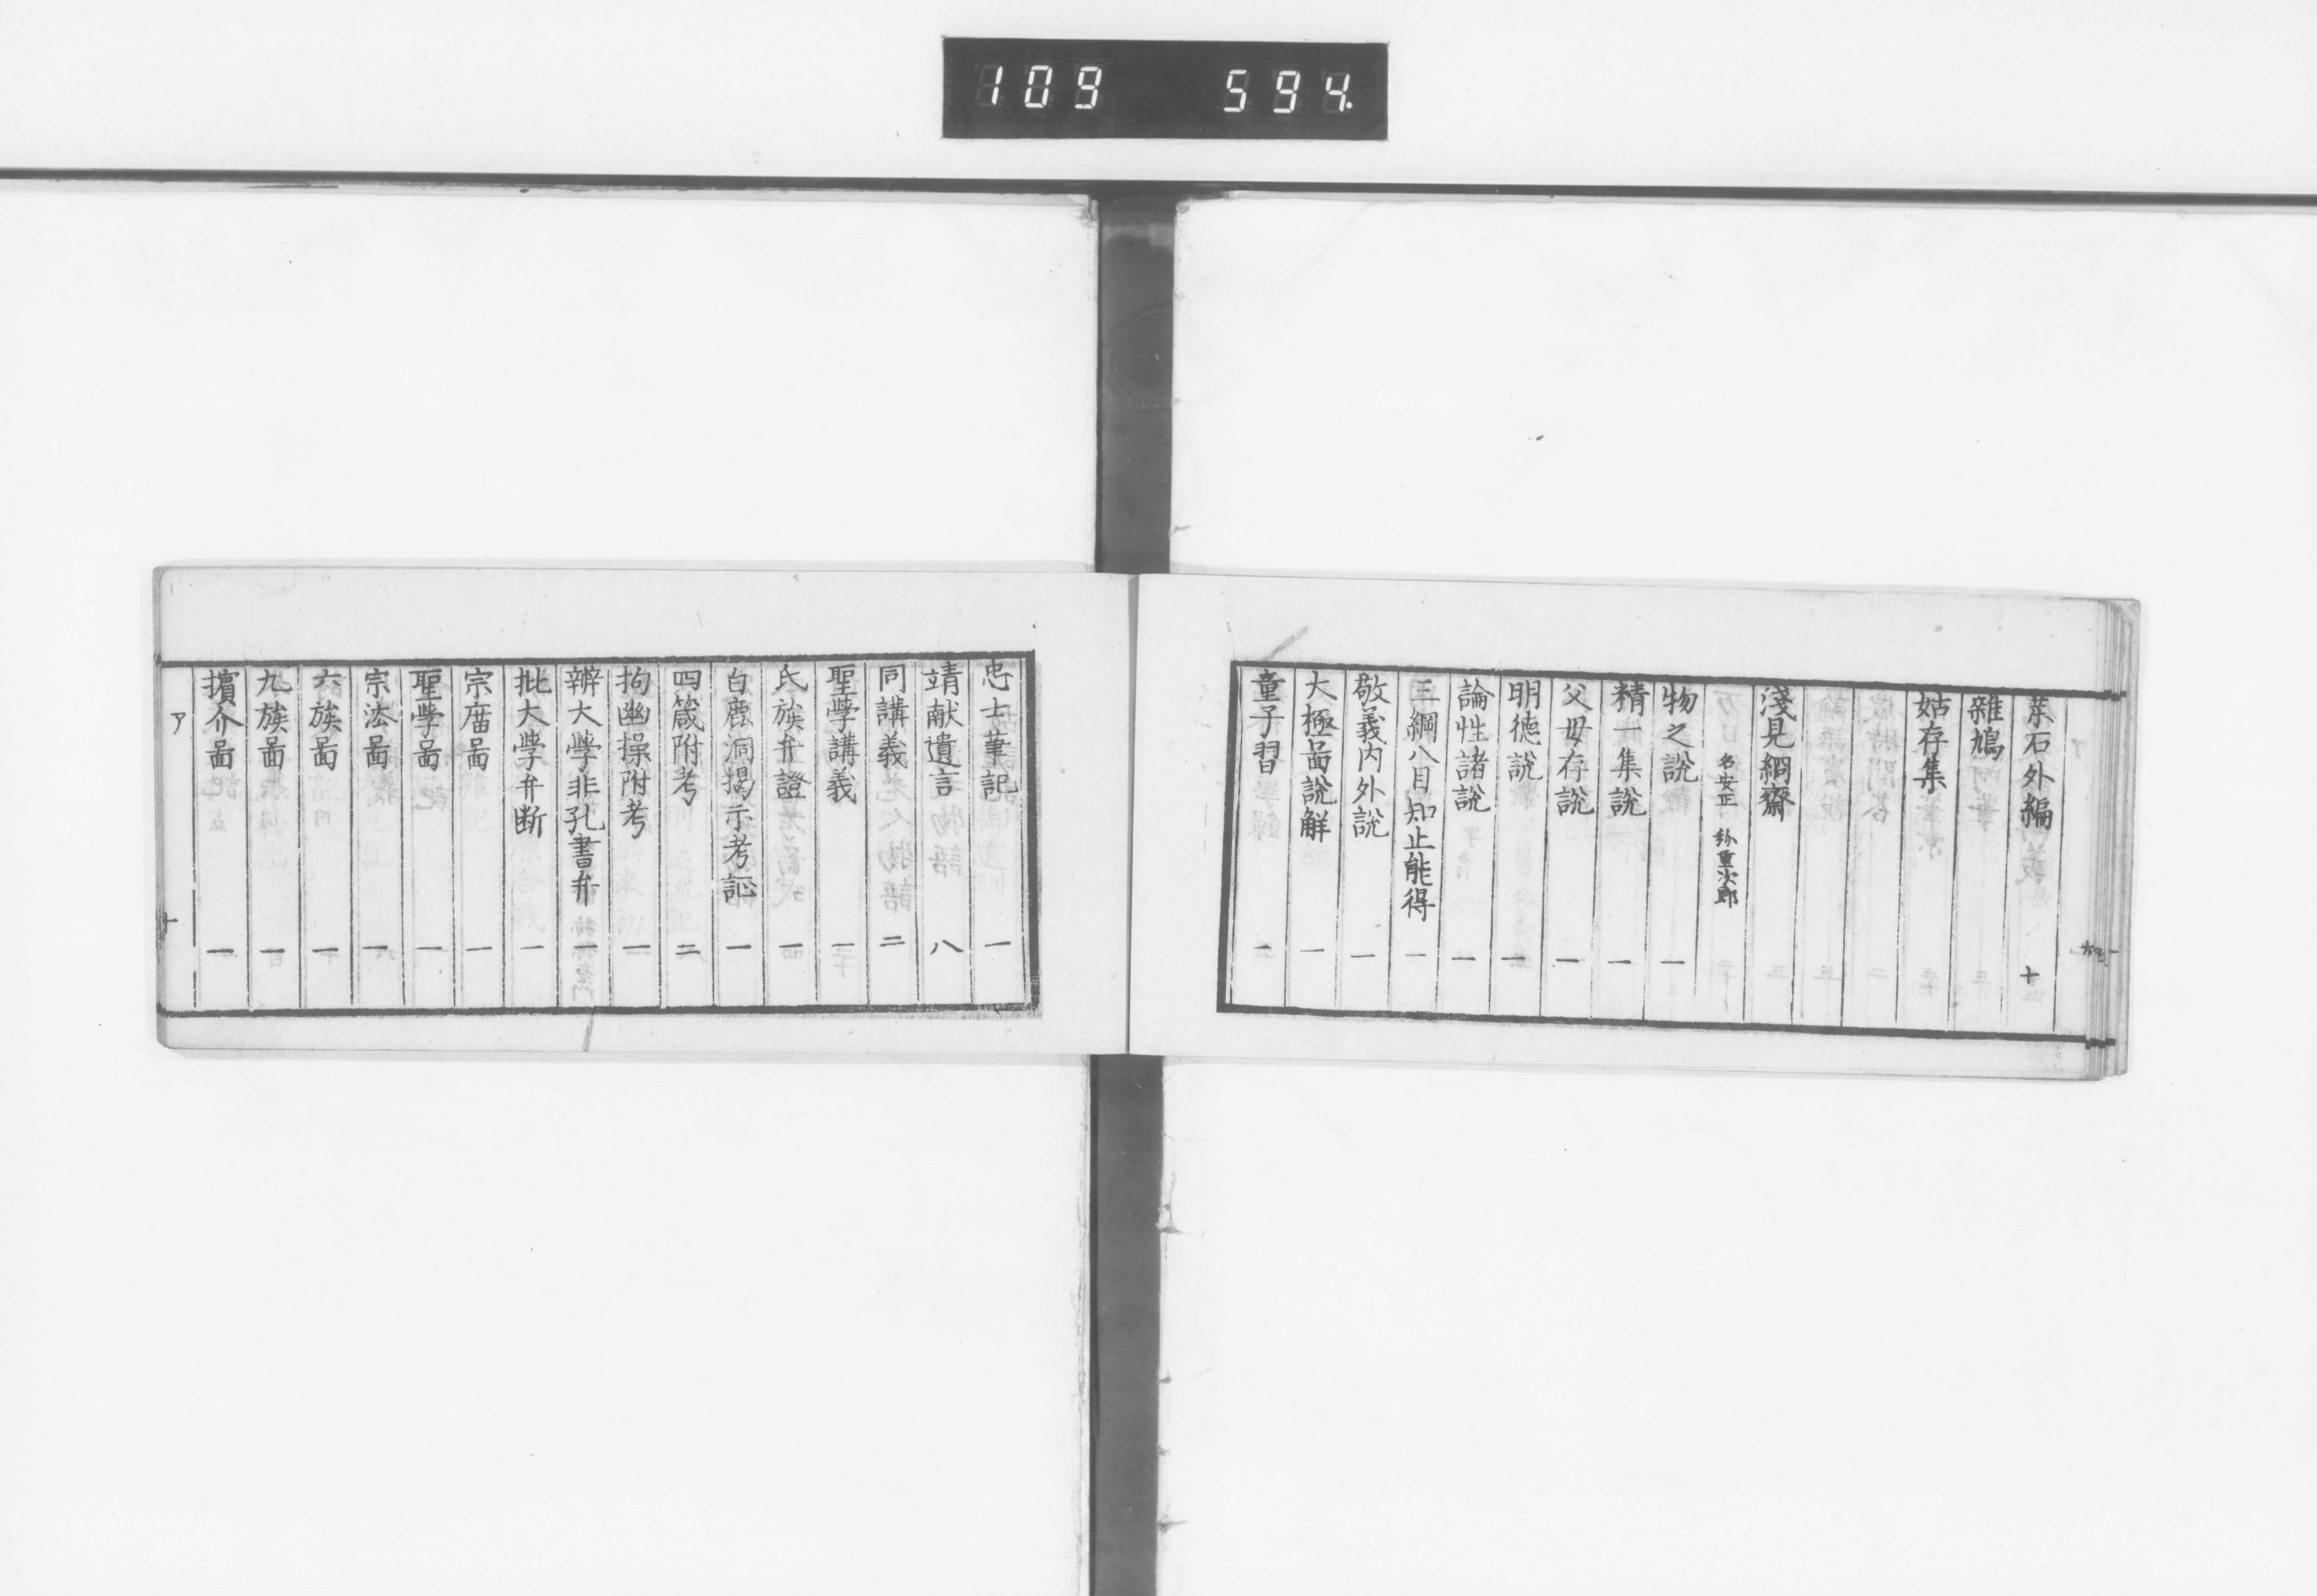 109 594.
葉石外編 十
雜鳩
姑存集
淺見絅齋
名安正 称重次郎
物之說 一
精一集說 一
父母存說 一
明德說 一
論性諸說 一
三綱八目知止能得 一
敬義内外說 一
大極啚說解 一
童子習
忠士筆記 一
靖献遺言 八
同講義 二
聖學講義 一
氏族弁證 一
白鹿洞揭示考証 一
四箴附考 二
拘幽操附考 一
辨大學非孔書弁 一
批大學弁断 一
宗庿啚 一
聖學啚 一
宗法啚 一
六族啚 一
九族啚 一
擯介啚 一
ア 十